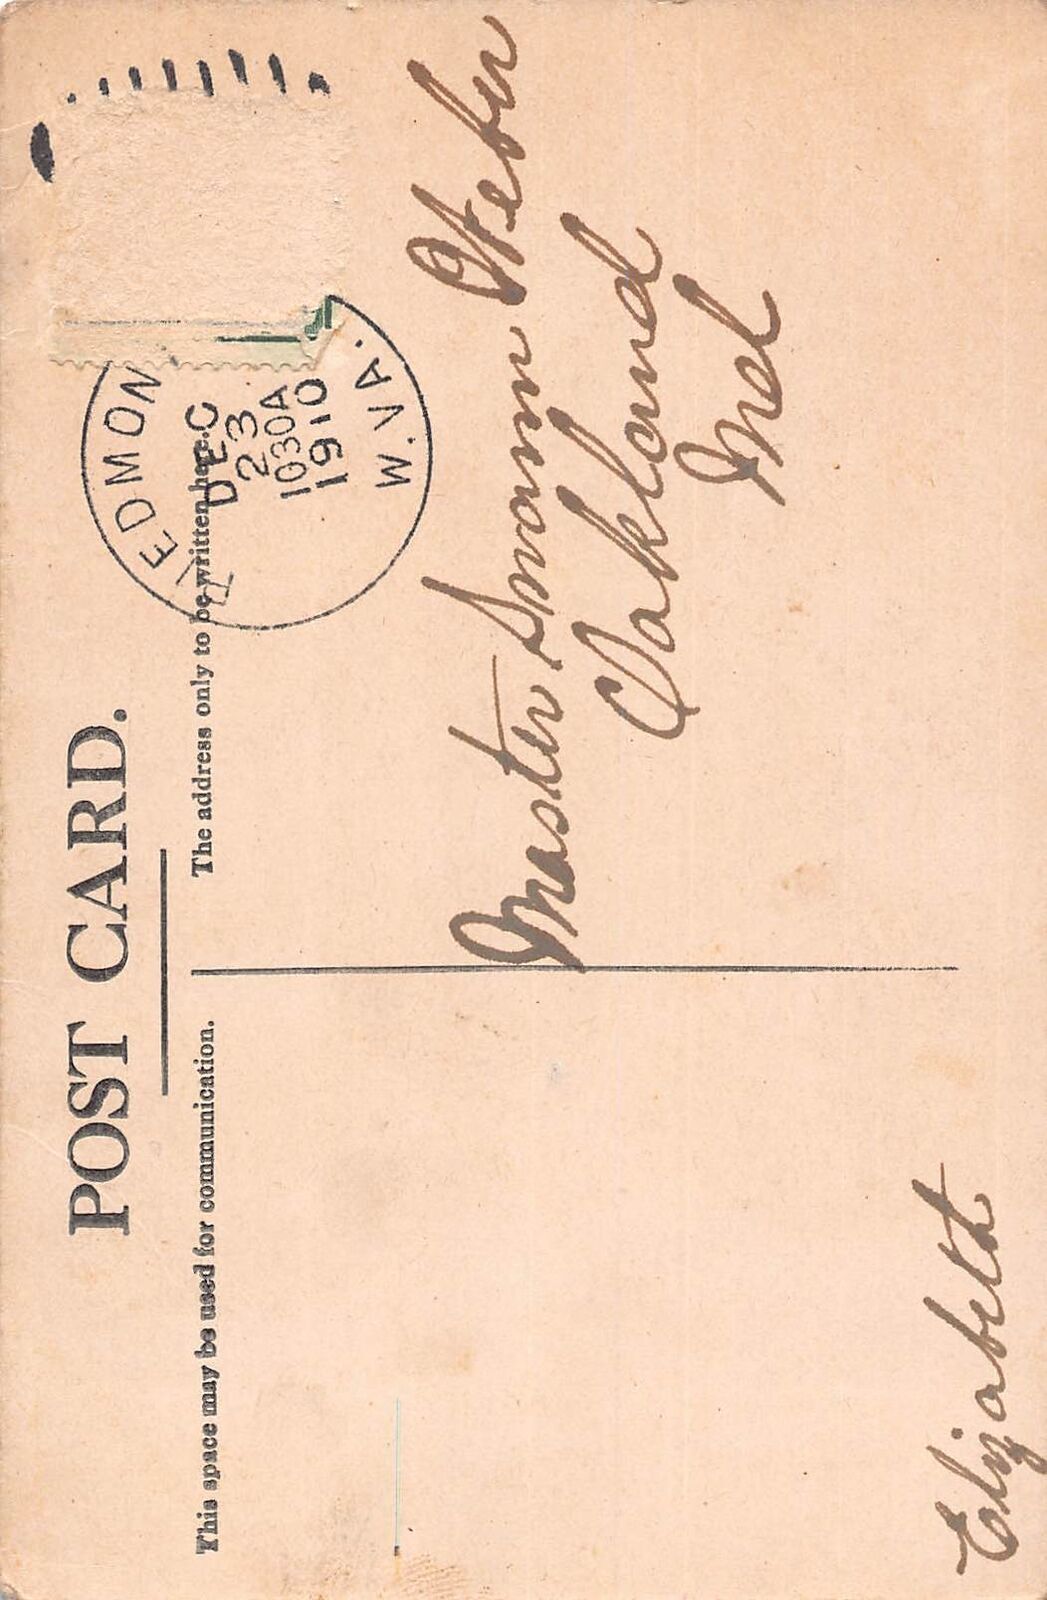 POST CARD.
This space may be used for communication.
The address only to be written here.
EDMON
W.VA.
DEC
23
1030A
1910
Master Swann Weber
Oakland
Md
Elizabeth